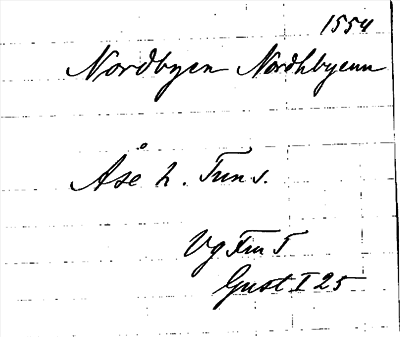 1554
Nordbyen Nordhbyenn
Åse h. Tun s.
Vg Fru 5
Gust I 25